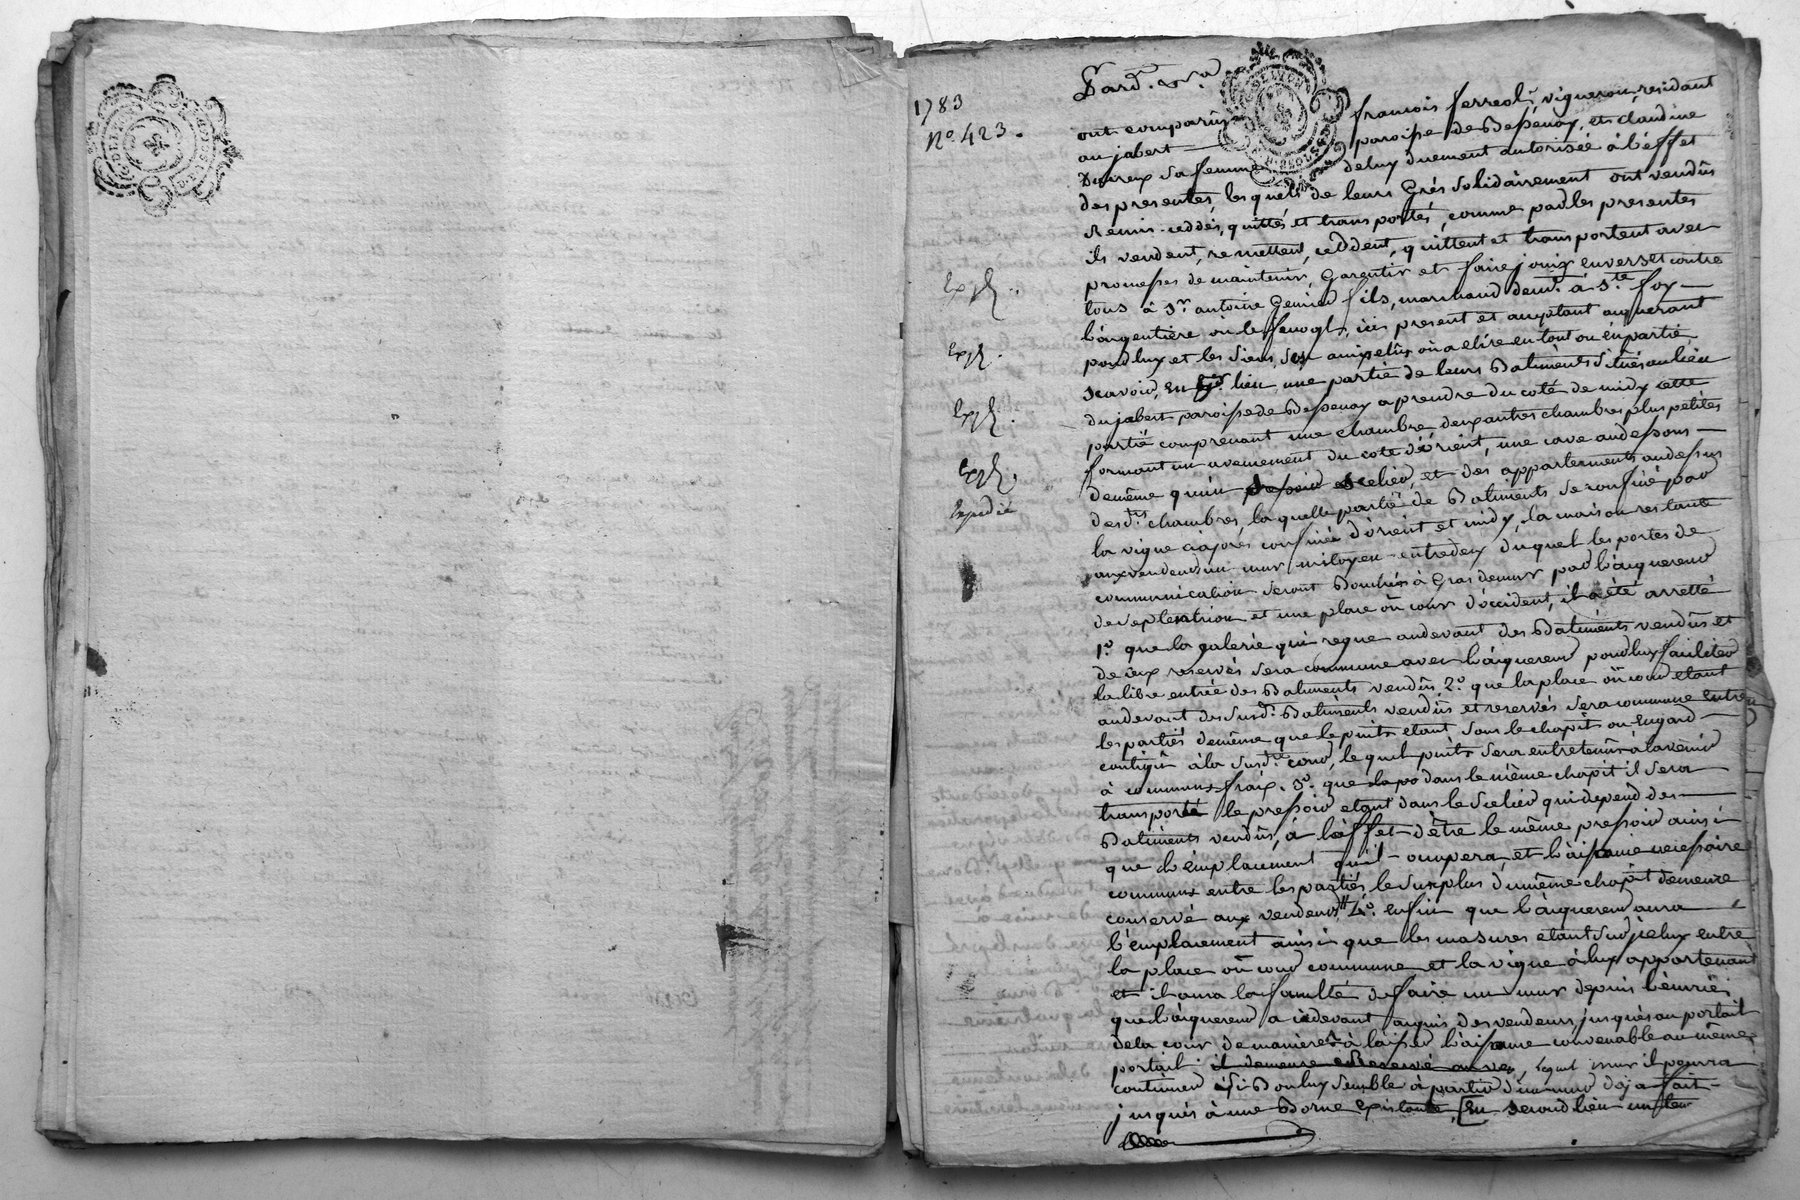 1783
N.o 423.
Pard. n.re
ont comparûs françois ferreol, vigneron, residant
au jabert paroisse de Bessenay, et claudine
sa femme de luy duement autorisée à l'éffet
des presentes, lesquels de leurs Grés solidairement ont vendûs
Remis, ceddés, quittés et transportés, comme par les presentes
ils vendent, remettent, ceddent, quittent et transportent avec
promesses de maintenir, Garentir et faire jouir envers et contre
tous à S.r antoine fils, marchand dem.t à S.te foy
l'argentiere, icy present et acceptant acquerant
pour luy et les siens, son amy elû ou à elire en tout ou en partie,
scavoir, En p.er lieu, une partie de leurs Batiments situés au lieu
du jabert paroisse de Bessenay a prendre du coté de midy cette
partie comprenant une chambre, deux autres chambres plus petites
formant un avenement du coté d'orient, une cave au dessous
de même qu'un scelier, et des appartements au dessus
des d.tes chambres, laquelle partie de Batiments se confine par
la vigne ciaprés confinée d'orient et midy, la maison restante
aux vendeurs un mur mitoyen entredeux duquel les portes de
communication seront Bouchées à Gras de mur par l'acquereur
de septentrion et une place ou cour d'occident, il a été arretté
1.o que la galerie qui regne au devant des Batiments vendûs et
de ceux reservés sera commune avec l'acquereur pour luy faciliter
la libre entrée des Batiments vendûs, 2.o que la place ou cour etant
au devant des susd. Batiments vendûs et reservés sera commune entre
les parties de même que le puits etant sous le chapit ou Engard
contigu à la susd.te cour, le quel puits sera entretenû à l'avenir
à communs fraix. 3.o que dans le même chapit il sera
transporté le pressoir etant dans le scelier qui depend des
Batiments vendûs, à l'éffet d'être le même pressoir ainsi
que l'emplacement qu'il occupera, et l'aisance necessaire
communs entre les parties, le surplus du même chapit demeure
conservé aux vendeurs 4.o enfin que l'acquereur aura
l'emplacement ainsi que les masures etant sur jceluy entre
la place ou cour commune et la vigne à luy appartenant
et il aura la faculté de faire un mur depuis l'écurie
que l'acquereur a cidevant acquis des vendeurs jusqués au portail
de la cour de maniere à laisser l'aisance convenable au même
portail il demeure reservé, lequel mur il pourra
continuer si Bon luy semble à partir d'un mur deja fait
jusqués à une Borne Existante, En second lieu un
Exp.
Exp.
Exp.
Exp.
Expedié